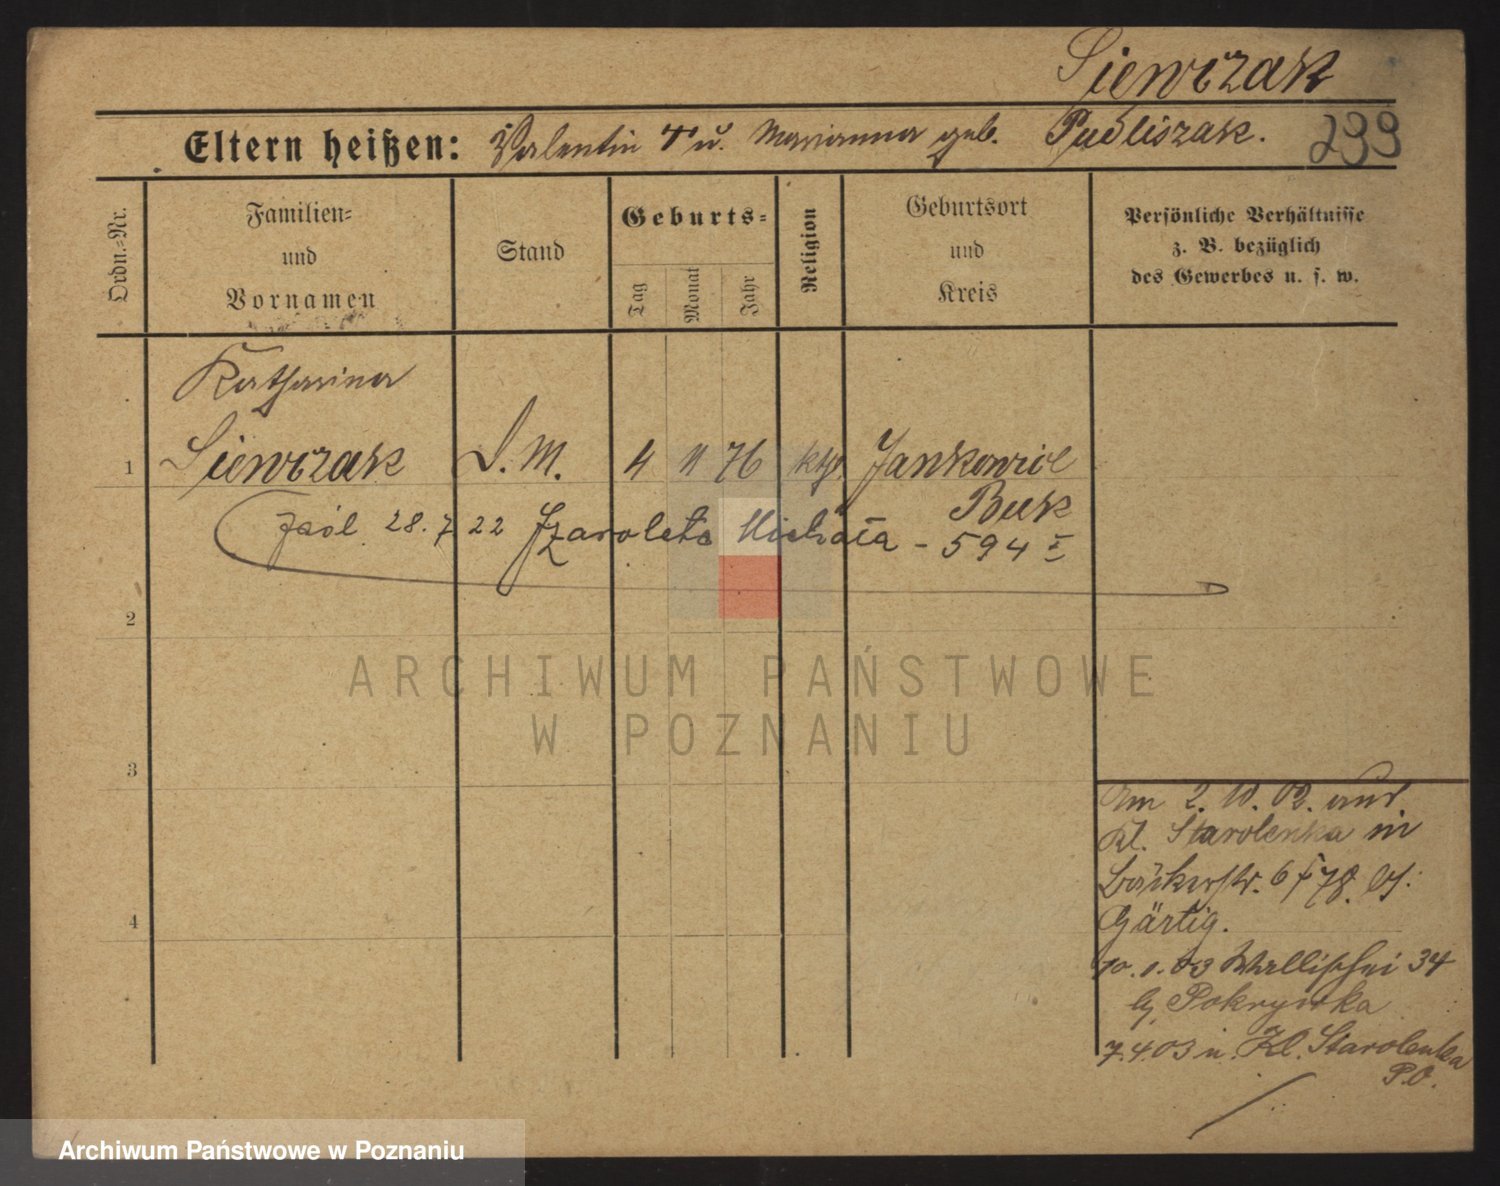 Siewczak
Eltern heißen: Valentin † u. Marianna geb. Pudliszak. 299
Ordn.=Nr.
Familien=
und
Vornamen
Stand
Geburts=
Tag
Monat
Jahr
Religion
Geburtsort
und
Kreis
Persönliche Verhältnisse
z. B. bezüglich
des Gewerbes u. s. w.
Katharina
1 Siewczak D. M. 4 11 76 kth. Jankowice
Buk
28. 7 22 Michała - 594 I
2
ARCHIWUM PAŃSTWOWE
W POZNANIU
3
Am 2. 10. 02. aus
Kl. Starolenka in
Bäckerstr. 6 78. bei
4 Gärtig.
10. 1. 03 Wallischei 34
bj Pokrywka
7.4.03 n. Kl. Starolenka
P.O.
Archiwum Państwowe w Poznaniu